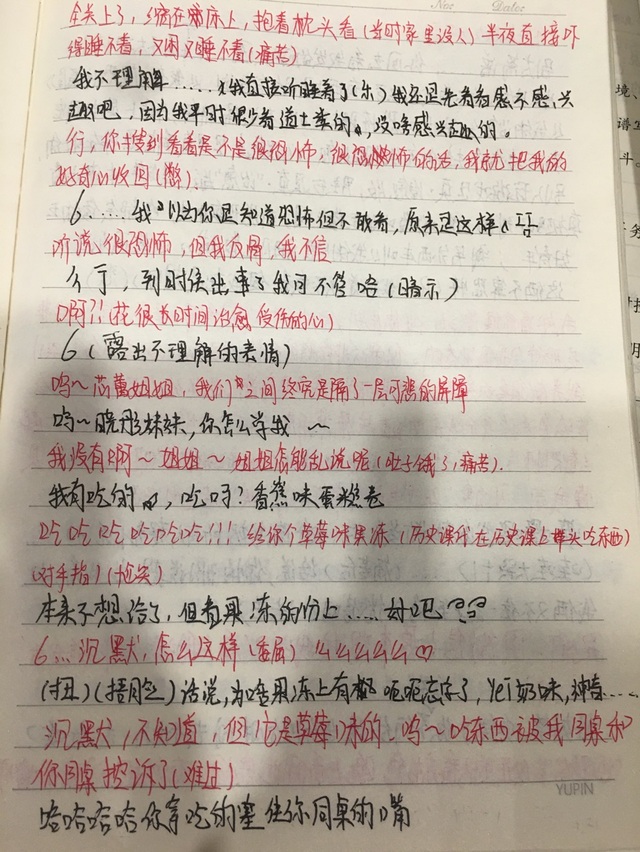 全关上了，缩在那床上，抱着枕头看（当时家里没人）半夜直接吓
得睡不着，又困又睡不着（痛苦）
我不理解……我直接听睡着了（乐）我还是先看看感不感兴
趣吧，因为我平时很少看道士类的，没啥感兴趣的。
行，你搜到看看是不是很恐怖，很恐怖的话，我就把我的
好奇心收回（擦）.
6……我以为你是知道恐怖但不敢看，原来是这样
听说很恐怖，但我反骨，我不信
今丁，到时候出事了我可不管哈（暗示）
啊?!（花很长时间治愈受伤的心）
6（露出不理解的表情）
呜~芯蕾姐姐，我们之间终究是隔了一层可悲的屏障
呜~晓彤妹妹，你怎么学我 ~
我没有啊~姐姐~姐姐怎能乱说呢（肚子饿了，痛苦）.
我有吃的，吃吗？香蕉味蛋燃卷
吃吃吃吃吃吃!!! 给你个草莓味果冻（历史课代在历史课上埋头吃东西）
（对手指）（抢突）
本来不想给了，但看果冻的份上……好吧
6…沉默，怎么这样（委屈）么么么么么♡
（丑）（捂脸）话说，为啥果冻上有都 呃呃忘字了，Yei奶味，神奇…
沉默，不知道，但它是草莓味的，呜~吃东西被我同桌和
你同桌控诉了（难过）
哈哈哈哈你拿吃的塞住你同桌的嘴
YUPIN